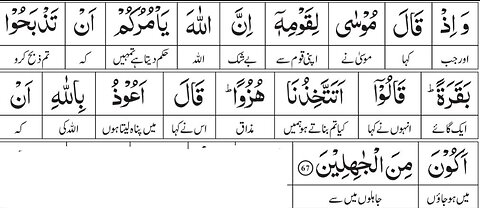 وَ اِذْ قَالَ مُوْسٰى لِقَوْمِهٖۤ اِنَّ اللّٰهَ يَاْمُرُكُمْ اَنْ تَذْبَحُوْا
اور جب کہا موسیٰ نے اپنی قوم سے بے شک اللہ حکم دیتا ہے تمہیں کہ تم ذبح کرو
بَقَرَةً ؕ قَالُوْۤا اَتَتَّخِذُنَا هُزُوًا ؕ قَالَ اَعُوْذُ بِاللّٰهِ اَنْ
ایک گائے انہوں نے کہا کیا تم بناتے ہو ہمیں مذاق اس نے کہا میں پناہ لیتا ہوں اللہ کی کہ
اَكُوْنَ مِنَ الْجٰهِلِيْنَ ۶۷
میں ہو جاؤں جاہلوں میں سے